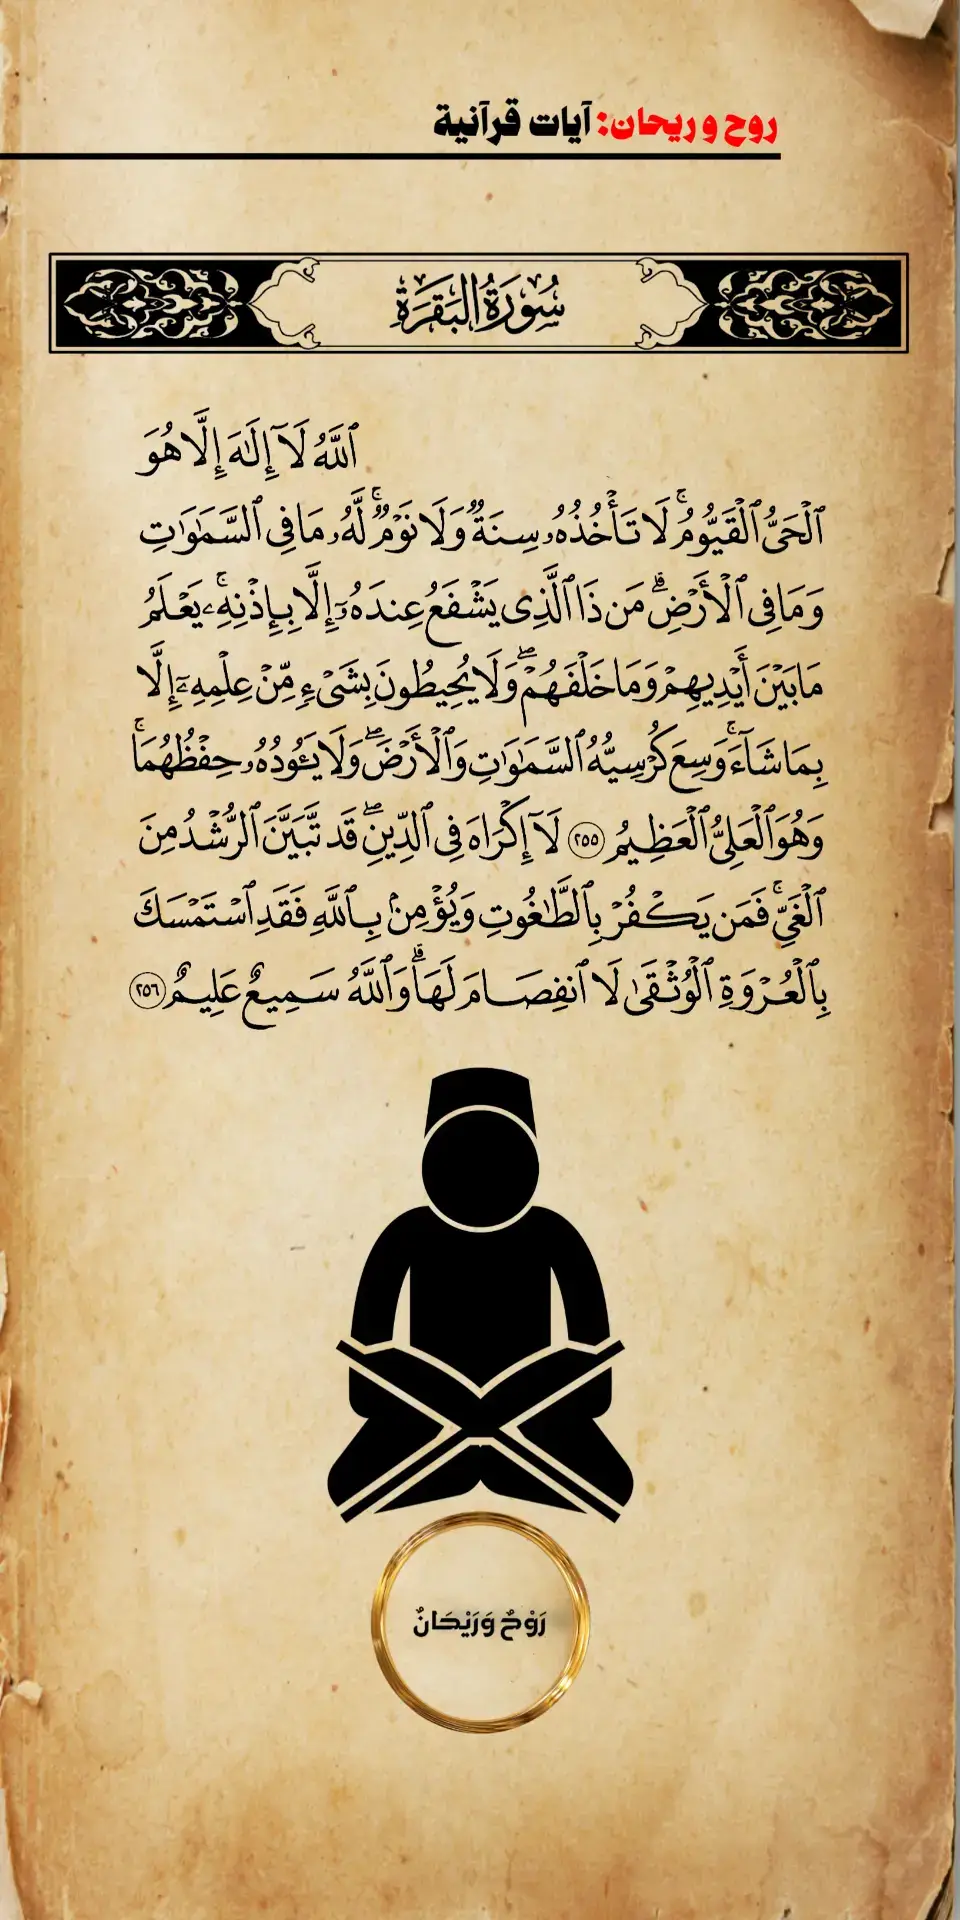 روح و ريحان: آيات قرآنية
سُورَةُ البَقَرَةِ
ٱللَّهُ لَآ إِلَٰهَ إِلَّا هُوَ
ٱلْحَىُّ ٱلْقَيُّومُ ۚ لَا تَأْخُذُهُۥ سِنَةٌ وَلَا نَوْمٌ ۚ لَّهُۥ مَا فِى ٱلسَّمَٰوَٰتِ
وَمَا فِى ٱلْأَرْضِ ۗ مَن ذَا ٱلَّذِى يَشْفَعُ عِندَهُۥٓ إِلَّا بِإِذْنِهِۦ ۚ يَعْلَمُ
مَا بَيْنَ أَيْدِيهِمْ وَمَا خَلْفَهُمْ ۖ وَلَا يُحِيطُونَ بِشَىْءٍ مِّنْ عِلْمِهِۦٓ إِلَّا
بِمَا شَآءَ ۚ وَسِعَ كُرْسِيُّهُ ٱلسَّمَٰوَٰتِ وَٱلْأَرْضَ ۖ وَلَا يَـُٔودُهُۥ حِفْظُهُمَا ۚ
وَهُوَ ٱلْعَلِىُّ ٱلْعَظِيمُ ٢٥٥ لَآ إِكْرَاهَ فِى ٱلدِّينِ ۖ قَد تَّبَيَّنَ ٱلرُّشْدُ مِنَ
ٱلْغَىِّ ۚ فَمَن يَكْفُرْ بِٱلطَّٰغُوتِ وَيُؤْمِنۢ بِٱللَّهِ فَقَدِ ٱسْتَمْسَكَ
بِٱلْعُرْوَةِ ٱلْوُثْقَىٰ لَا ٱنفِصَامَ لَهَا ۗ وَٱللَّهُ سَمِيعٌ عَلِيمٌ ٢٥٦
رَوْحٌ وَرَيْحَانٌ